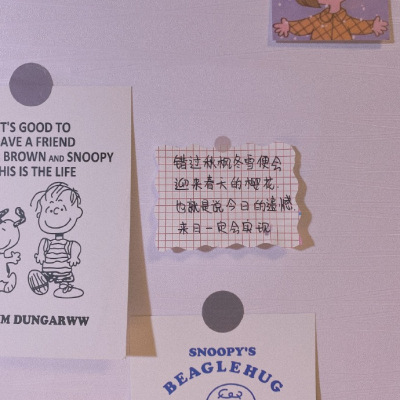 T'S GOOD TO
AVE A FRIEND
BROWN AND SNOOPY
HIS IS THE LIFE
M DUNGARWW
错过秋枫冬雪便会
迎来春天的樱花.
也就是说今日的遗憾.
来日一定会实现
SNOOPY'S
BEAGLEHUG